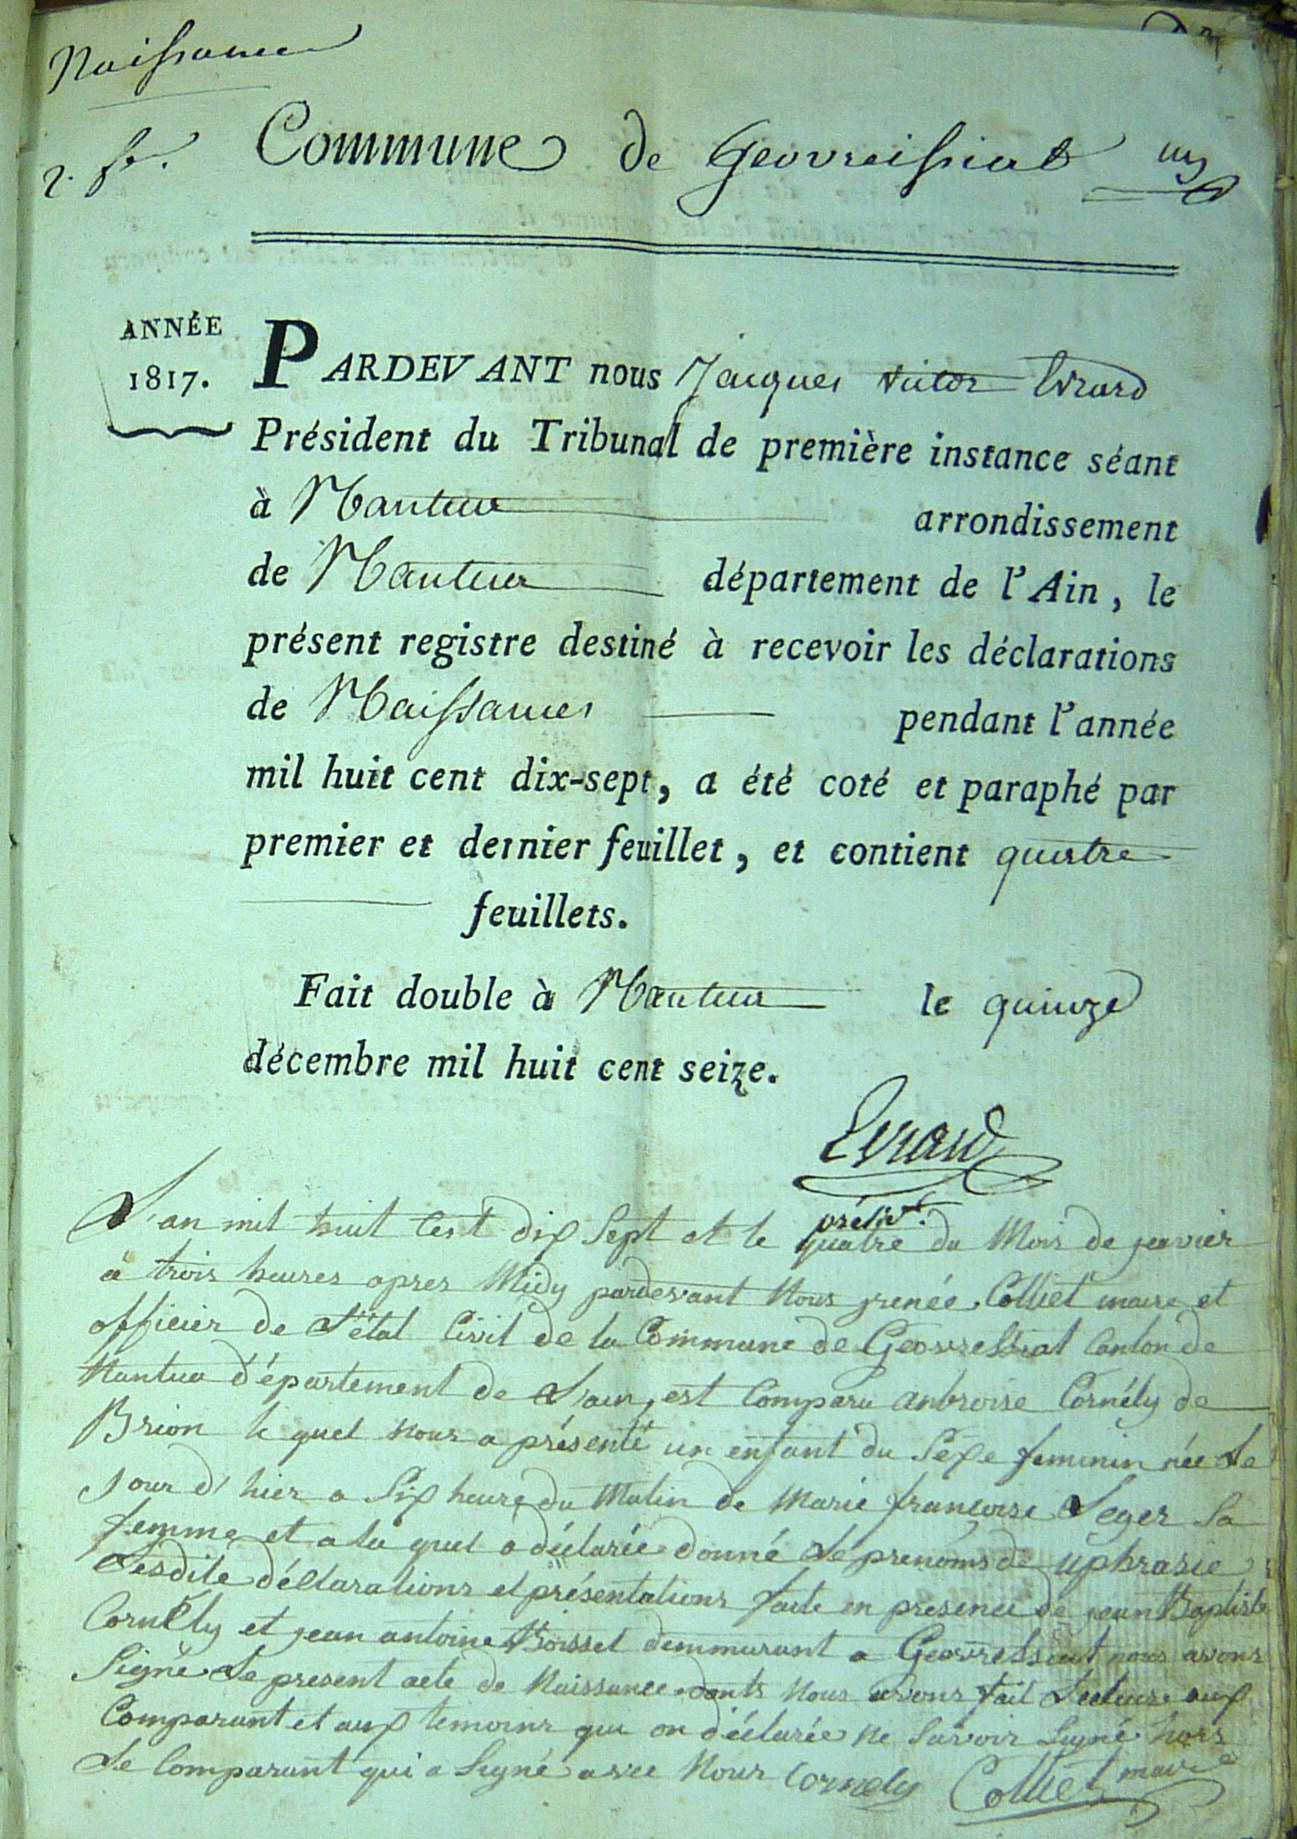 Naissance
2. ft.
Commune de Geovreissiat un
ANNÉE
1817.
PARDEVANT nous Jacques Victor Evrard
Président du Tribunal de première instance séant
à Nantua arrondissement
de Nantua département de l'Ain, le
présent registre destiné à recevoir les déclarations
de Naissances pendant l'année
mil huit cent dix-sept, a été coté et paraphé par
premier et dernier feuillet, et contient quatre
feuillets.
Fait double à Nantua le quinze
décembre mil huit cent seize.
Evrard
présidt.
L'an mil huit Cent dix Sept et le quatre du Mois de janvier
a trois heures apres Midy pardevant Nous renée Colliet maire et
officier de L'état Civil de la Commune de Geovressiat Canton de
Nantua d'épartement de L'ain, est Comparu anbroise Cornély de
Brion le quel nous a présenté un enfant du Sexe feminin née Le
jour d'hier a Six heure du Matin de Marie francoise Leger Sa
femme et a la quel a déclarée donné Le prenoms de uphrasie
Lesdite déClarations et présentations faite en presence de jean Baptiste
Cornély et jean antoine Boisset demmurant a Geovressiat nous avons
Signé Le present acte de Naissance donts Nous avons fait Lecture aux
Comparant et aux temoins qui on déclarée ne Savoir Signé hors
Le Comparant qui a Signé avec Nous Cornely Colliet maire